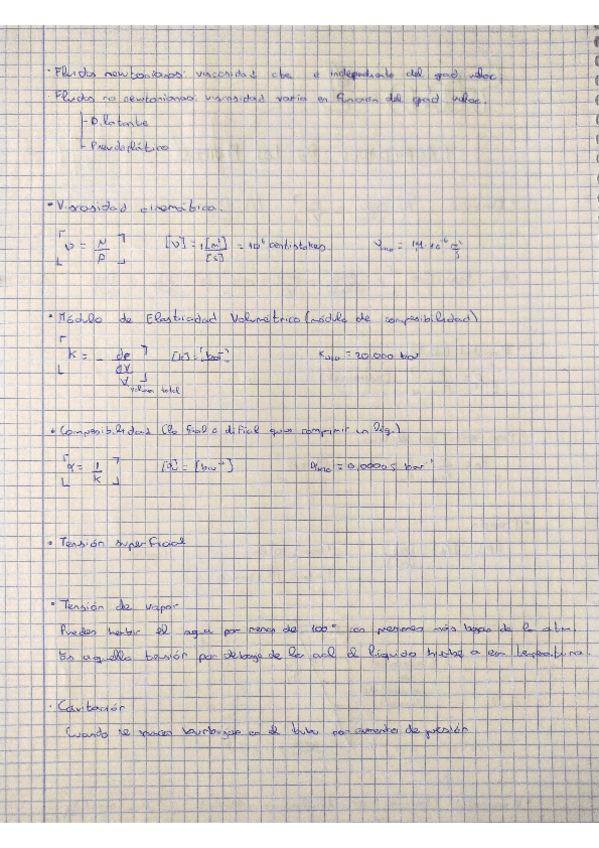 · Fluidos newtonianos: viscosidad cte e independiente del grad. veloc.
Fluidos no newtonianos: viscosidad varia en función del grad veloc.
- Dilatante
- Pseudoplástico
• Viscosidad cinemática.
ν = μ/ρ [ν] = 1 [m²]/[s] = 10⁶ centistokes
• Módulo de Elasticidad Volumétrico (módulo de compresibilidad)
k = - dp / dV/V [k] = "bar" K H₂O = 20.000 bar
volumen total
• Compresibilidad (lo fácil o difícil que comprimir un líq.)
α = 1/k [α] = [bar⁻¹] α H₂O = 0,00005 bar⁻¹
• Tensión superficial
• Tensión de vapor
Puedes hervir el agua por menos de 100° con presiones más bajas de la atm.
Es aquella tensión por debajo de la cual el líquido hierbe a esa temperatura.
· Cavitación
Cuando se crean burbujas en el tubo por aumentos de presión